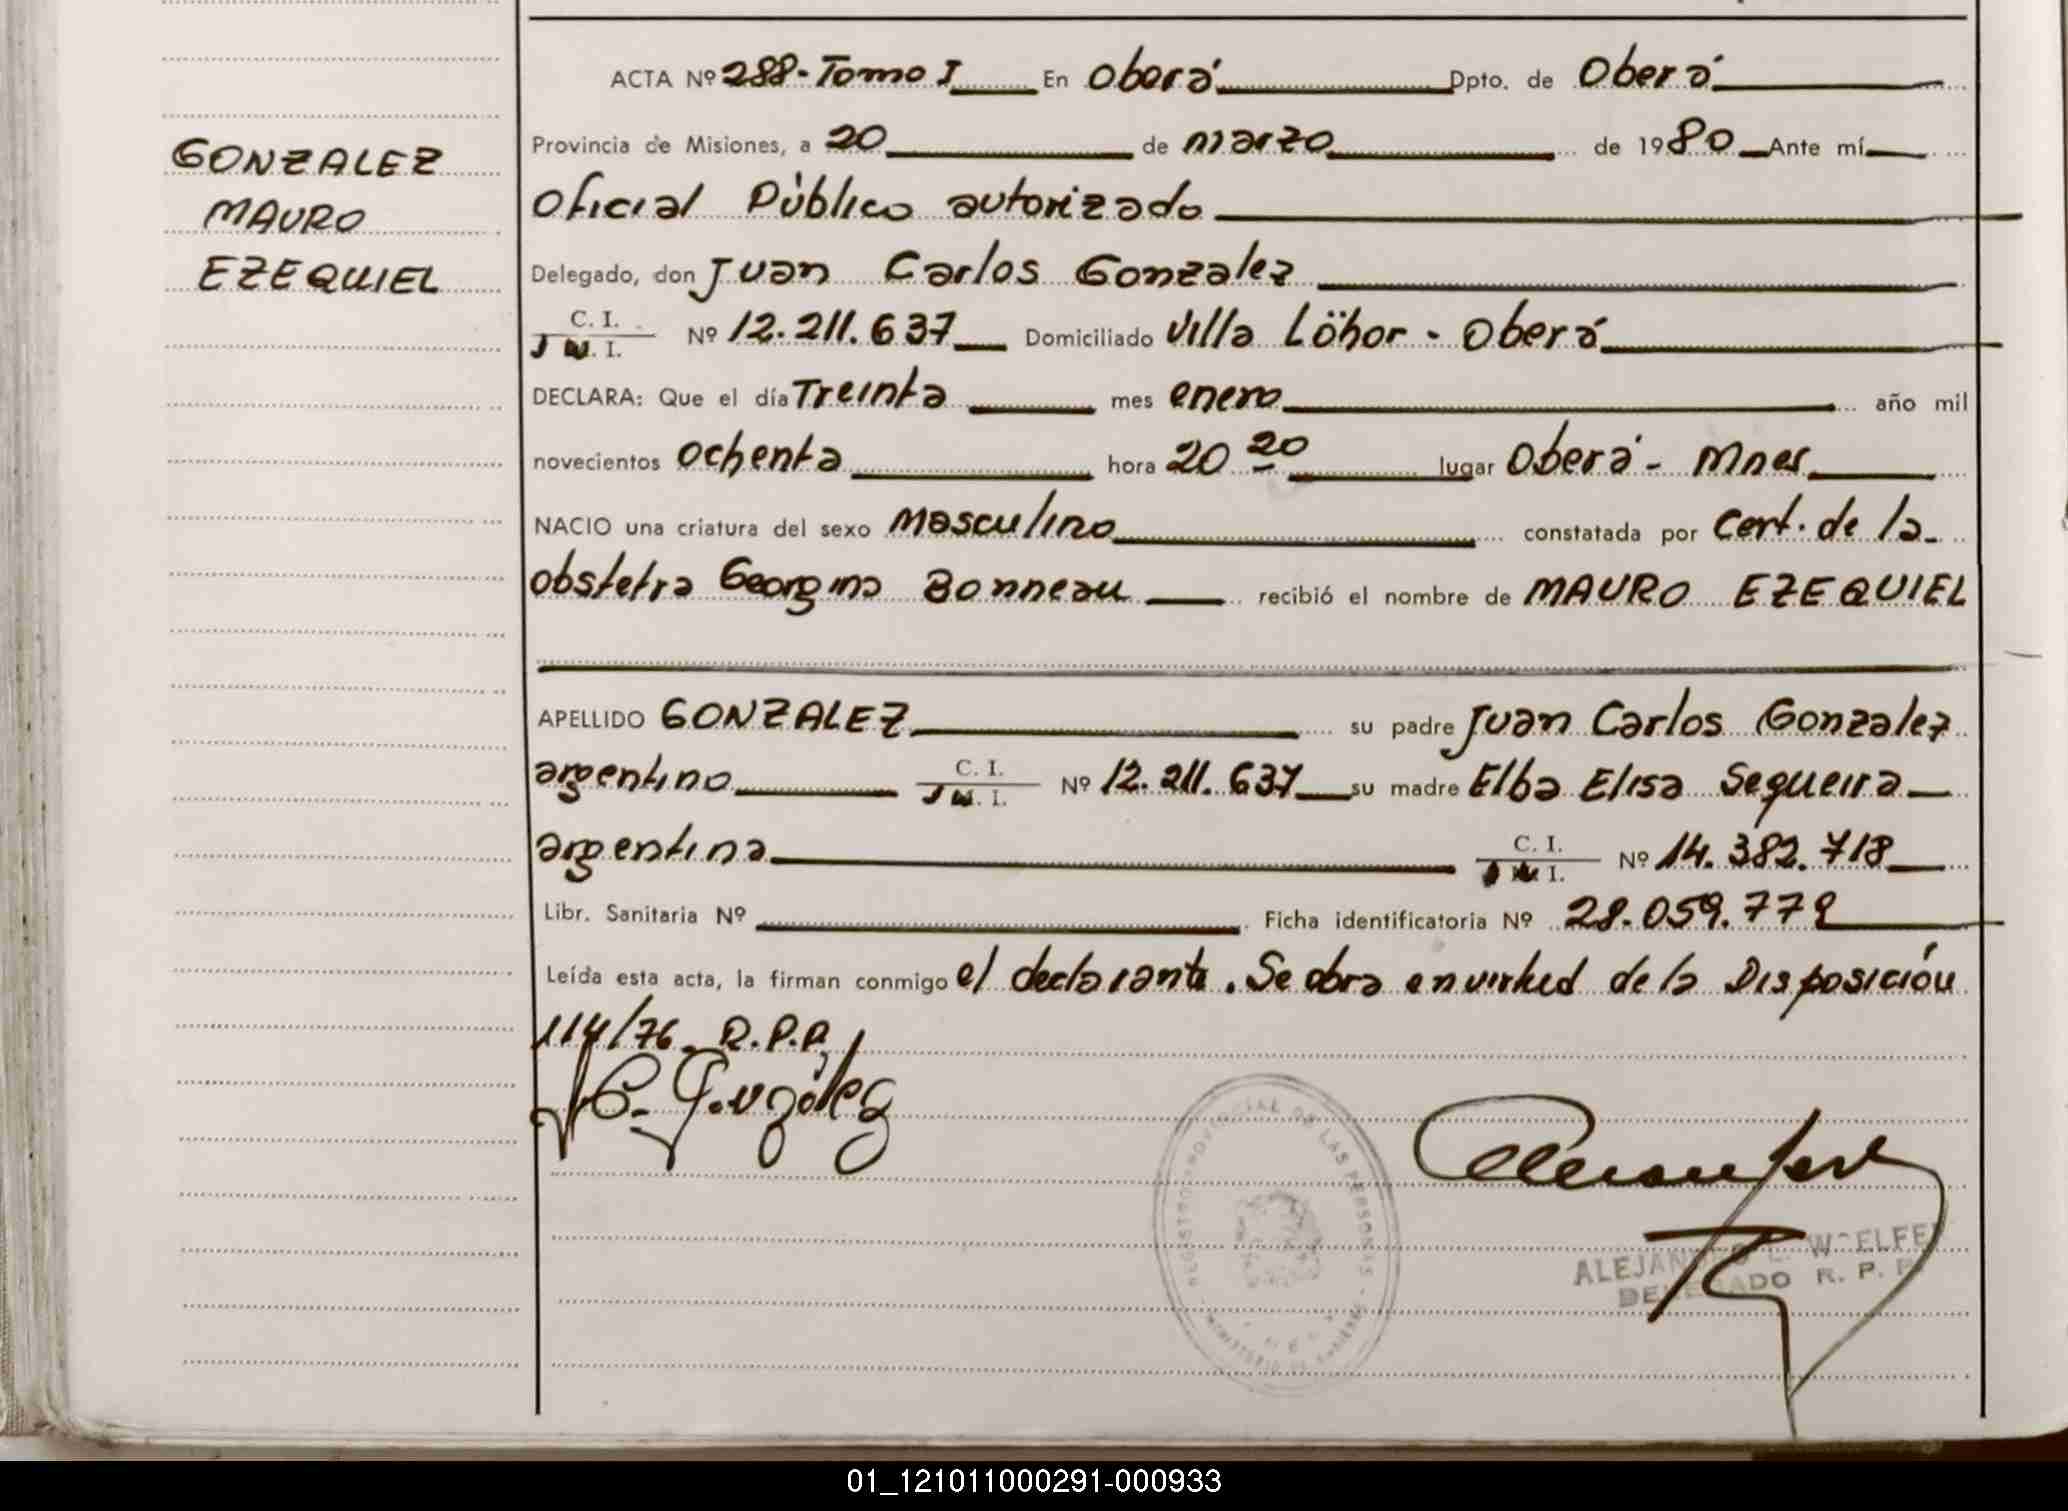 ACTA Nº 288-Tomo I En Oberá Dpto. de Oberá
Provincia de Misiones, a 20 de marzo de 1980 Ante mí
GONZALEZ
MAURO
EZEQUIEL
Oficial Público autorizado
Delegado, don Juan Carlos Gonzalez
C. I.
Nº 12.211.637 Domiciliado Villa Löhor - Oberá
I.
DECLARA: Que el día Treinta mes enero año mil
novecientos ochenta hora 20 20 lugar Oberá - Mnes
NACIO una criatura del sexo masculino constatada por Cert. de la
obstetra Georgina Bonneau recibió el nombre de MAURO EZEQUIEL
APELLIDO GONZALEZ su padre Juan Carlos Gonzalez
argentino C. I. Nº 12.211.637 su madre Elba Elisa Sequeira
I.
argentina C. I. Nº 14.382.718
I.
Libr. Sanitaria Nº Ficha identificatoria Nº 28.059.779
Leída esta acta, la firman conmigo el declarante. Se obra en virtud de la Disposición
114/76 R.P.P.
J C. González
REGISTRO PROVINCIAL DE LAS PERSONAS
ALEJANDRO
DELEGADO R. P. P.
01_121011000291-000933